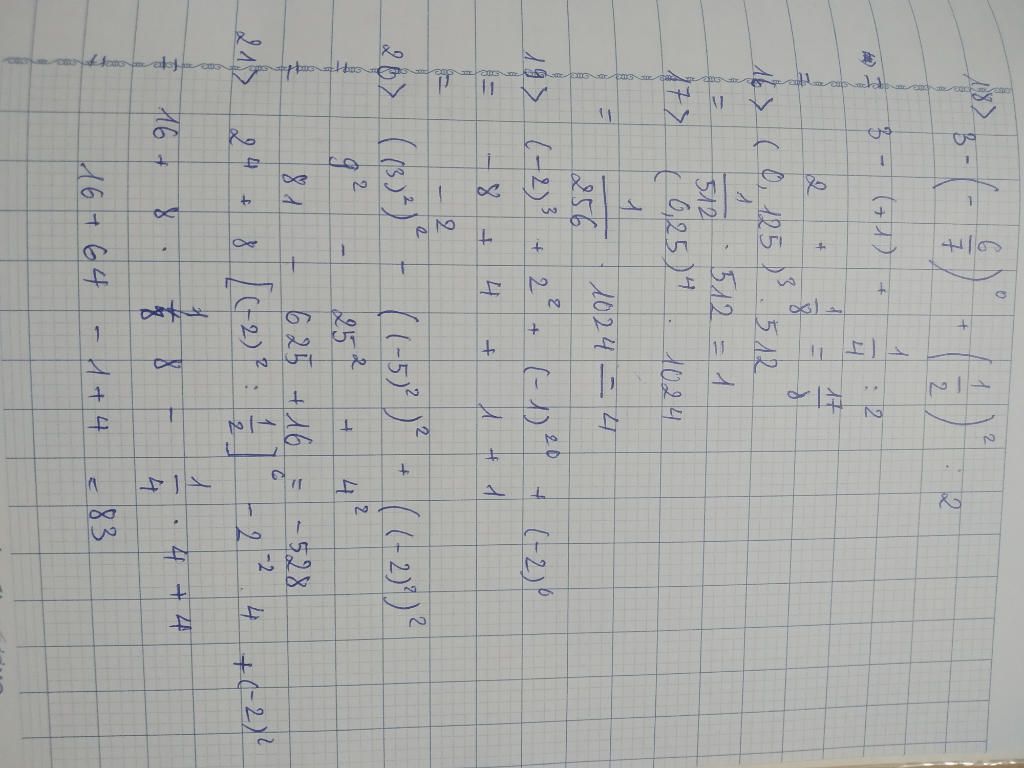 18> 3 - (- 6/7)⁰ + (1/2)² : 2
= 3 - (+1) + 1/4 : 2
= 2 + 1/8 = 17/8
16> (0,125)³ · 512
= 1/512 · 512 = 1
17> (0,25)⁴ · 1024
= 1/256 · 1024 = 4
19> (-2)³ + 2² + (-1)²⁰ + (-2)⁰
= -8 + 4 + 1 + 1
= -2
20> ((3)²)² - ((-5)²)² + ((-2)²)²
= 9² - 25² + 4²
= 81 - 625 + 16 = -528
21> 2⁴ + 8 [(-2)² : 1/2]⁰ - 2⁻² · 4 + (-2)²
= 16 + 8 · 8 - 1/4 · 4 + 4
= 16 + 64 - 1 + 4 = 83